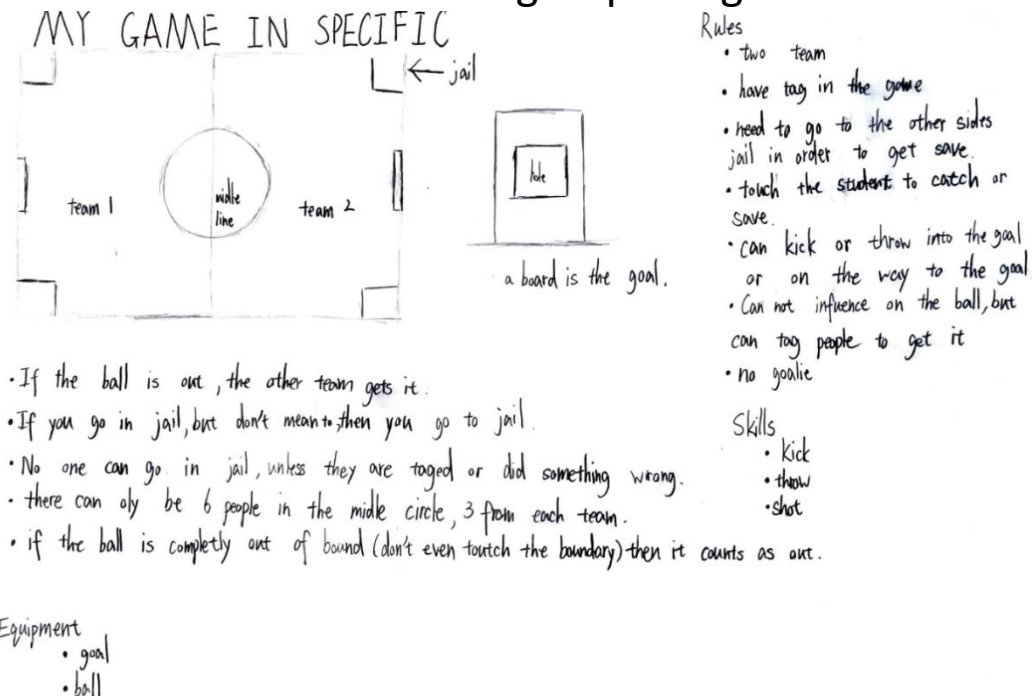 MY GAME IN SPECIFIC
← jail
team 1
midle
line
team 2
hole
a board is the goal.
Rules
• two team
• have tag in the game
• need to go to the other sides
jail in order to get save.
• touch the student to catch or
save.
• can kick or throw into the goal
or on the way to the goal
• Can not influence on the ball, but
can tag people to get it
• no goalie
• If the ball is out, the other team gets it.
• If you go in jail, but don't mean to, then you go to jail.
• No one can go in jail, unless they are taged or did something wrong.
• there can oly be 6 people in the midle circle, 3 from each team.
• if the ball is completly out of bound (don't even toutch the boundary) then it counts as out.
Skills
• kick
• throw
• shot
Equipment
• goal
• ball